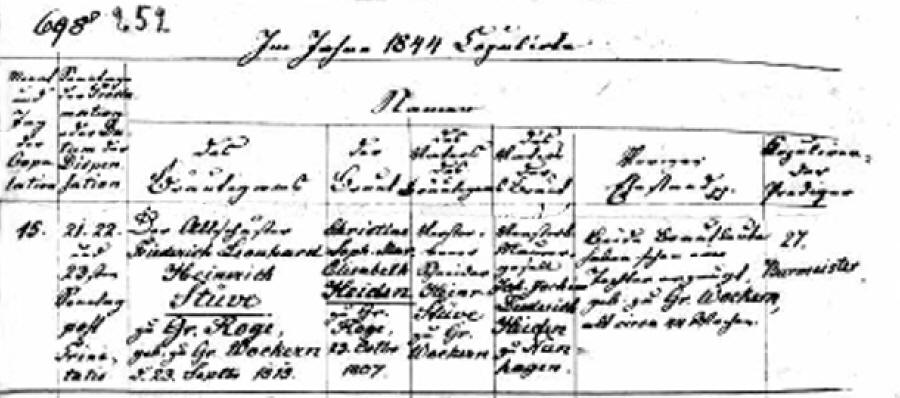 698 252
Im Jahre 1844 Copulirte
Namen
Monat
und
Tag
der
Copu
lation
Sonntage
der Procla
mation
oder Da
tum der
Dispen
sation
des
Bräutigams
der
Braut
des
Vaters
des
Bräutigams
des
Vaters
der Braut
Voriger
Ehestand pp.
Copuliren
der
Prediger
15.
21. 22.
und
23sten
Sonntag
post
Trini
tatis
Der Altschuster
Friederich Leonhard
Heinrich
Stüve
zu Gr. Roge,
geb. zu Gr. Wockern
d. 23. Septbr 1813.
Christina
Soph. Mar.
Elisabeth
Heiden
zu Gr.
Roge,
23. Octbr
1807.
Verstor
bener
Heinr.
Stüve
zu Gr.
Wockern
Verstorb.
Maurer
gesell
Joh. Jochen
Friederich
Heiden
zu Nien
hagen.
Beide Brautleute
haben schon eine
Tochter erzeugt,
geb. zu Gr. Wockern,
alt circa Wochen.
27.
Burmeister.